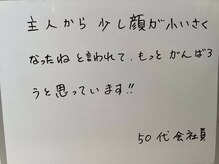 主人から 少し顔が小いさく
なったねと言われて、もっとがんばろ
うと思っています!!
50代会社員